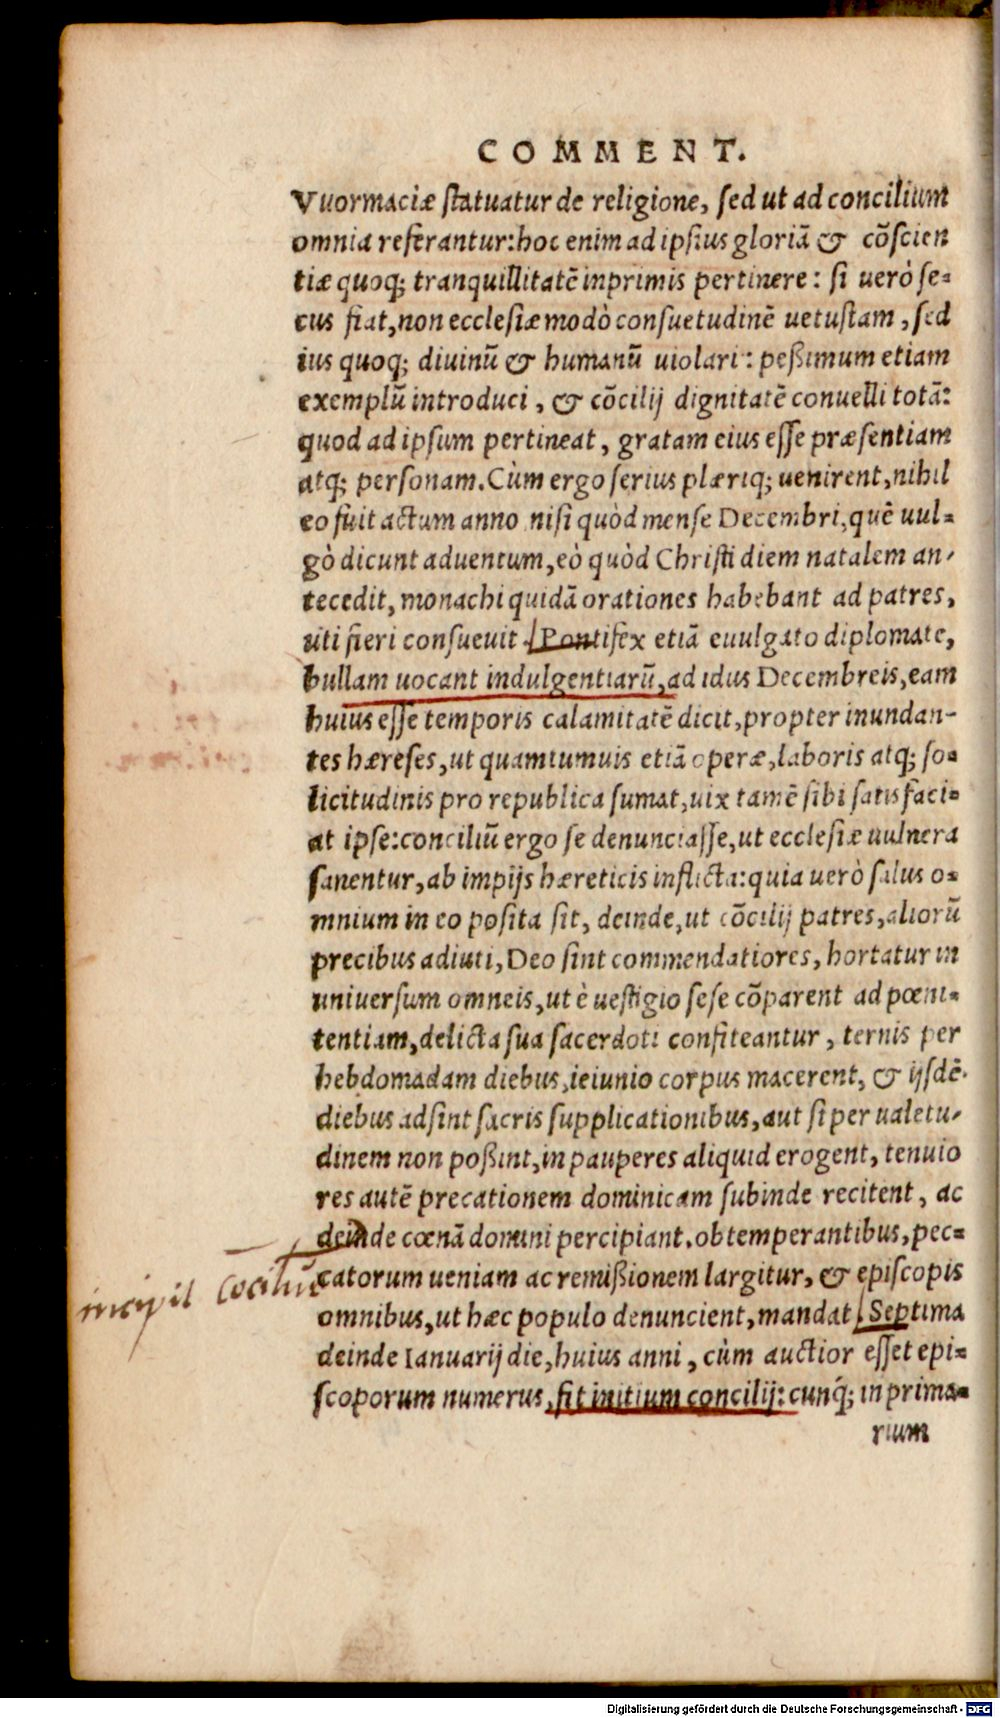 COMMENT.
Vuormaciæ statuatur de religione, sed ut ad concilium
omnia referantur: hoc enim ad ipsius gloriã & cõscien
tiæ quoq; tranquillitatẽ inprimis pertinere: si uerò se-
cus fiat, non ecclesiæ modò consuetudinẽ uetustam, sed
ius quoq; diuinũ & humanũ uiolari: peßimum etiam
exemplũ introduci, & cõcilij dignitatẽ conuelli totã:
quod ad ipsum pertineat, gratam eius esse præsentiam
atq; personam. Cùm ergo serius plæriq; uenirent, nihil
eo fuit actum anno nisi quòd mense Decembri, quẽ uul-
gò dicunt aduentum, eò quòd Christi diem natalem an-
tecedit, monachi quidã orationes habebant ad patres,
uti fieri consueuit. Pontifex etiã euulgato diplomate,
bullam uocant indulgentiarũ, ad idus Decembreis, eam
huius esse temporis calamitatẽ dicit, propter inundan-
tes hæreses, ut quamtumuis etiã operæ, laboris atq; so-
licitudinis pro republica sumat, uix tamẽ sibi satisfaci-
at ipse: conciliũ ergo se denunciasse, ut ecclesiæ uulnera
sanentur, ab impijs hæreticis inflicta: quia uerò salus o-
mnium in eo posita sit, deinde, ut cõcilij patres, aliorũ
precibus adiuti, Deo sint commendatiores, hortatur in
uniuersum omneis, ut è uestigio sese cõparent ad pœni-
tentiam, delicta sua sacerdoti confiteantur, ternis per
hebdomadam diebus, ieiunio corpus macerent, & ijsdẽ
diebus adsint sacris supplicationibus, aut si per ualetu-
dinem non poßint, in pauperes aliquid erogent, tenuio
res autẽ precationem dominicam subinde recitent, ac
deinde cœnã domini percipiant. obtemperantibus, pec-
catorum ueniam ac remißionem largitur, & episcopis
incipit Cociliũ
omnibus, ut hæc populo denuncient, mandat. Septima
deinde Ianuarij die, huius anni, cùm auctior esset epi-
scoporum numerus, fit initium concilij: cunq́; in prima-
rium
Digitalisierung gefördert durch die Deutsche Forschungsgemeinschaft - DFG